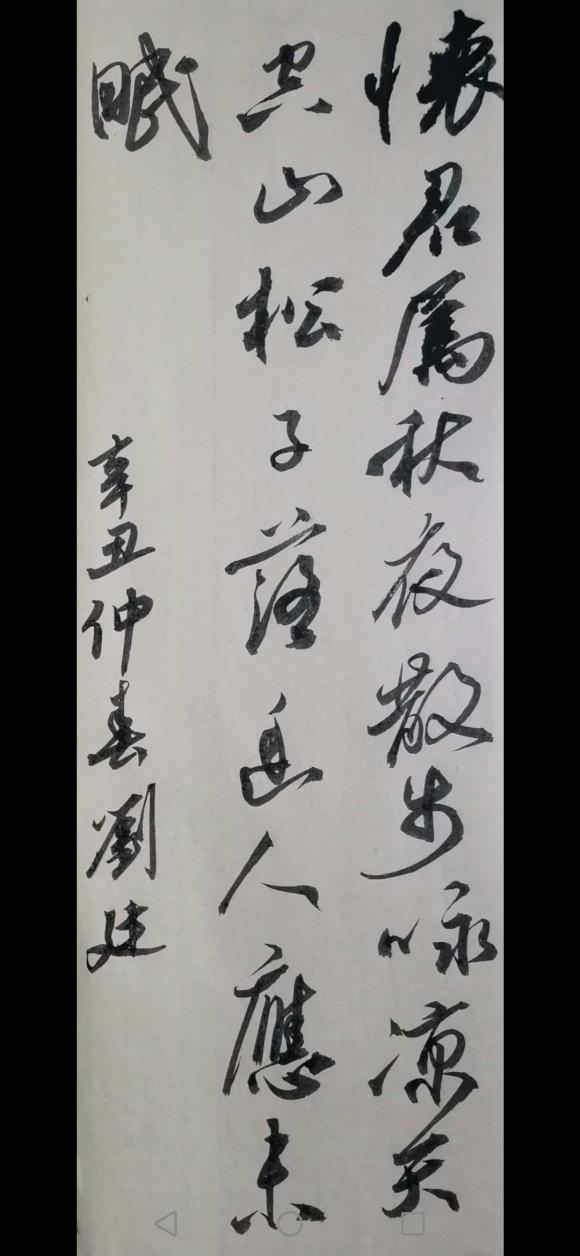 懷君屬秋夜散步咏凉天
空山松子落幽人應未
眠
辛丑仲春劉廷